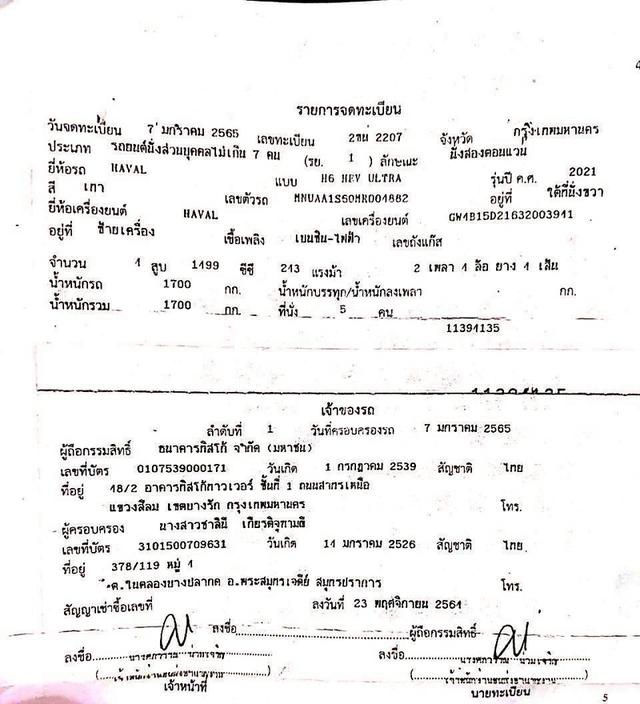 รายการจดทะเบียน
วันจดทะเบียน 7 มกราคม 2565 เลขทะเบียน 2ขน 2207 จังหวัด กรุงเทพมหานคร
ประเภท รถยนต์นั่งส่วนบุคคลไม่เกิน 7 คน (รย. 1 ) ลักษณะ นั่งสองตอนแวน
ยี่ห้อรถ HAVAL แบบ H6 HEV ULTRA รุ่นปี ค.ศ. 2021
สี เทา เลขตัวรถ MNUAA1S60MR004882 อยู่ที่ ใต้ที่นั่งขวา
ยี่ห้อเครื่องยนต์ HAVAL เลขเครื่องยนต์ GW4B15D21632003941
อยู่ที่ ซ้ายเครื่อง เชื้อเพลิง เบนซิน-ไฟฟ้า เลขถังแก๊ส
จำนวน 4 สูบ 1499 ซีซี 243 แรงม้า 2 เพลา 4 ล้อ ยาง 4 เส้น
น้ำหนักรถ 1700 กก. น้ำหนักบรรทุก/น้ำหนักลงเพลา กก.
น้ำหนักรวม 1700 กก. ที่นั่ง 5 คน
11394135
เจ้าของรถ
ลำดับที่ 1 วันที่ครอบครองรถ 7 มกราคม 2565
ผู้ถือกรรมสิทธิ์ ธนาคารทิสโก้ จำกัด (มหาชน)
เลขที่บัตร 0107539000171 วันเกิด 1 กรกฎาคม 2539 สัญชาติ ไทย
ที่อยู่ 48/2 อาคารทิสโก้ทาวเวอร์ ชั้นที่ 1 ถนนสาทรเหนือ
แขวงสีลม เขตบางรัก กรุงเทพมหานคร โทร.
ผู้ครอบครอง นางสาวชาลินี
เลขที่บัตร 3101500709631 วันเกิด 14 มกราคม 2526 สัญชาติ ไทย
ที่อยู่ 378/119 หมู่ 4
ต.ในคลองบางปลากด อ.พระสมุทรเจดีย์ สมุทรปราการ โทร.
สัญญาเช่าซื้อเลขที่ ลงวันที่ 23 พฤศจิกายน 2564
ลงชื่อ ผู้ถือกรรมสิทธิ์
ลงชื่อ ลงชื่อ
เจ้าหน้าที่ นายทะเบียน
5